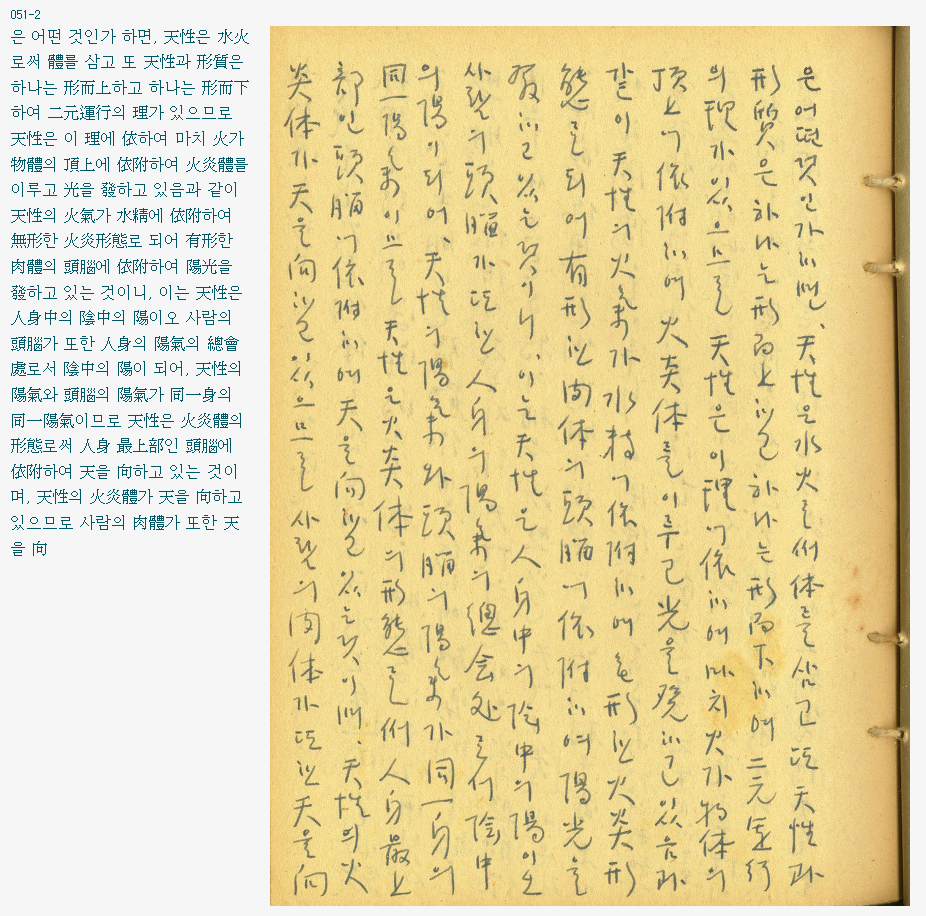 051-2
은 어떤 것인가 하면, 天性은 水火
로써 體를 삼고 또 天性과 形質은
하나는 形而上하고 하나는 形而下
하여 二元運行의 理가 있으므로
天性은 이 理에 依하여 마치 火가
物體의 頂上에 依附하여 火炎體를
이루고 光을 發하고 있음과 같이
天性의 火氣가 水精에 依附하여
無形한 火炎形態로 되어 有形한
肉體의 頭腦에 依附하여 陽光을
發하고 있는 것이니, 이는 天性은
人身中의 陰中의 陽이오 사람의
頭腦가 또한 人身의 陽氣의 總會
處로서 陰中의 陽이 되어, 天性의
陽氣와 頭腦의 陽氣가 同一身의
同一陽氣이므로 天性은 火炎體의
形態로써 人身 最上部인 頭腦에
依附하여 天을 向하고 있는 것이
며, 天性의 火炎體가 天을 向하고
있으므로 사람의 肉體가 또한 天
을 向
은 어떤 것인가 하면、天性은 水火로써 体를 삼고 또 天性과
形質은 하나는 形而上하고 하나는 形而下하여 二元運行
의 理가 있으므로 天性은 이 理에 依하여 마치 火가 物体의
頂上에 依附하여 火炎体를 이루고 光을 發하고 있음과
같이 天性의 火氣가 水精에 依附하여 無形한 火炎形
態로 되어 有形한 肉体의 頭腦에 依附하여 陽光을
發하고 있는 것이니、이는 天性은 人身中의 陰中의 陽이오
사람의 頭腦가 또한 人身의 陽氣의 總会处로서 陰中
의 陽이 되어、天性의 陽氣와 頭腦의 陽氣가 同一身의
同一陽氣이므로 天性은 火炎体의 形態로써 人身 最上
部인 頭腦에 依附하여 天을 向하고 있는 것이며、天性의 火
炎体가 天을 向하고 있으므로 사람의 肉体가 또한 天을 向